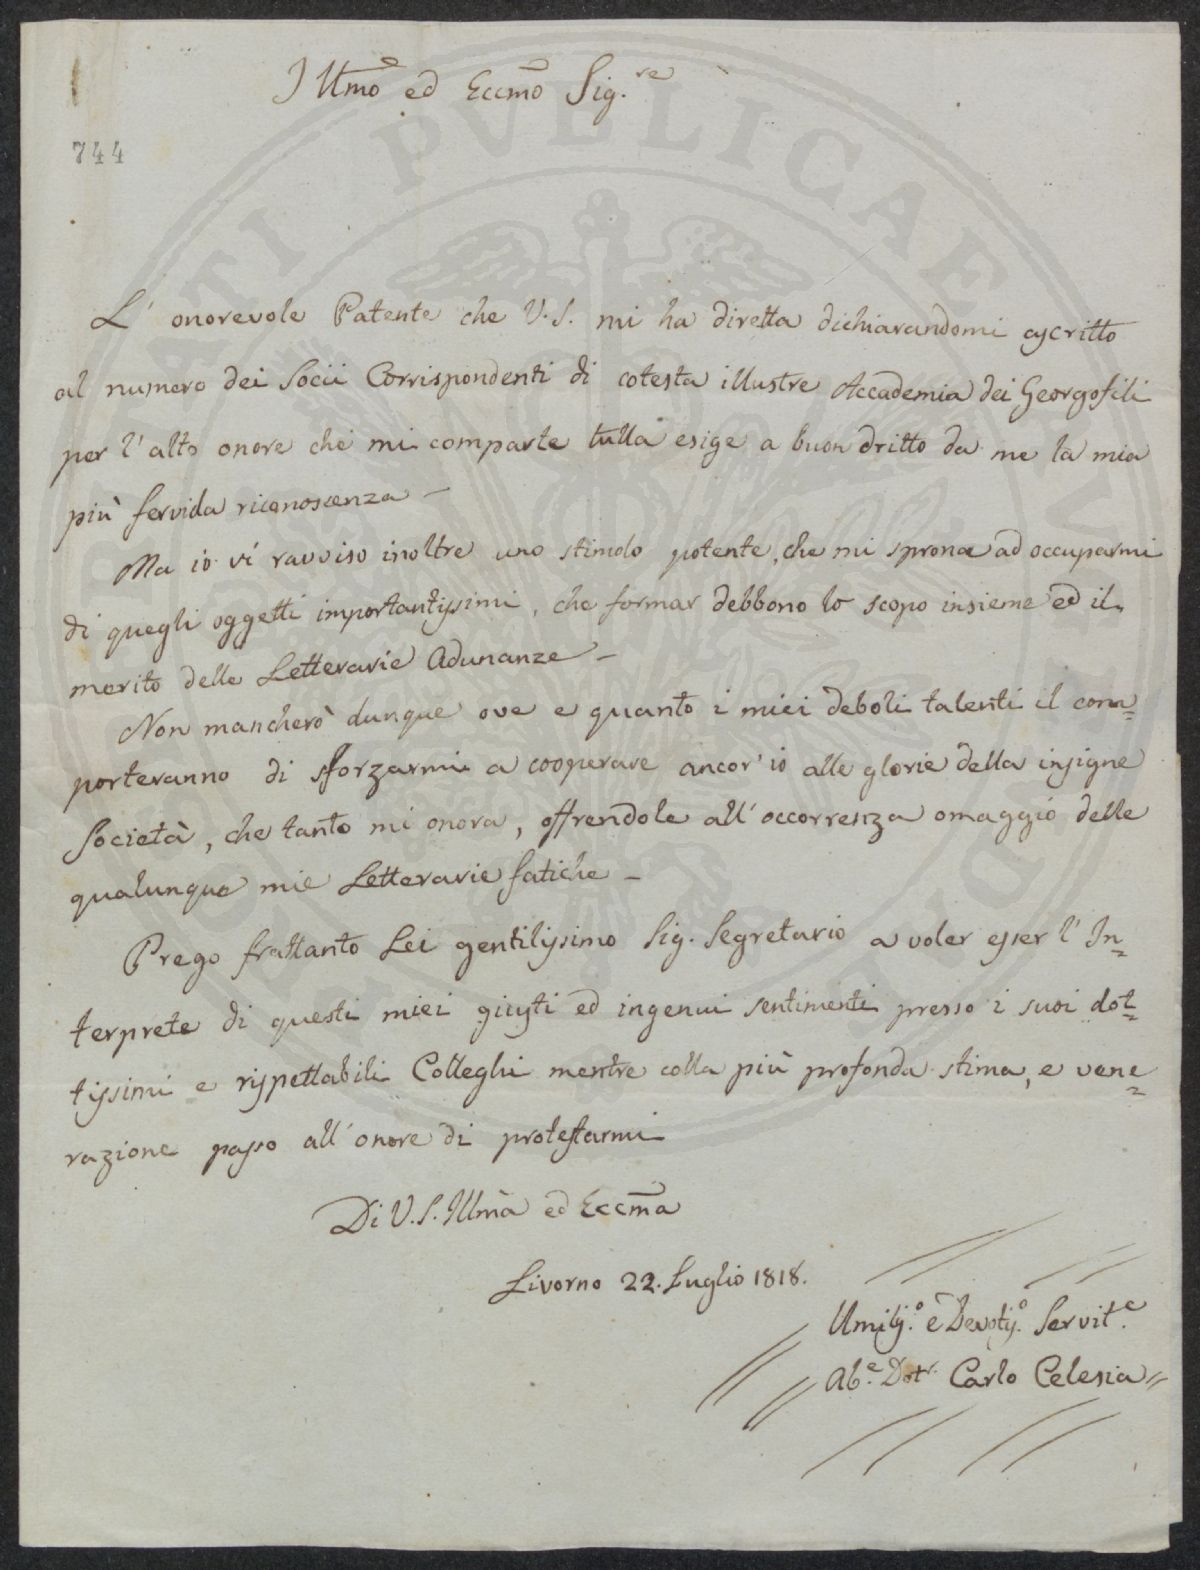 Illmo ed Eccmo Sig.re
744
L'onorevole Patente che V.S. mi ha diretta dichiarandomi ascritto
al numero dei Socii Corrispondenti di cotesta illustre Accademia dei Georgofili
per l'alto onore che mi comparte tutta esige a buon dritto da me la mia
più fervida riconoscenza –
Ma io vi ravviso inoltre uno stimolo potente, che mi sprona ad occuparmi
di quegli oggetti importantissimi, che formar debbono lo scopo insieme ed il
merito delle Letterarie Adunanze –
Non mancherò dunque ove e quanto i miei deboli talenti il com=
porteranno di sforzarmi a cooperare ancor'io alle glorie della insigne
Società, che tanto mi onora, offrendole all'occorrenza omaggio delle
qualunque mie Letterarie fatiche –
Prego frattanto Lei gentilissimo Sig. Segretario a voler esser l'In=
terprete di questi miei giusti ed ingenui sentimenti presso i suoi dot=
tissimi e rispettabili Colleghi mentre colla più profonda stima, e vene=
razione passo all'onore di protestarmi
Di V.S. Illma ed Eccma
Livorno 22. Luglio 1818.
Umilis.o e Devotis.o Servit.e
Ab.e Dott. Carlo Celesia